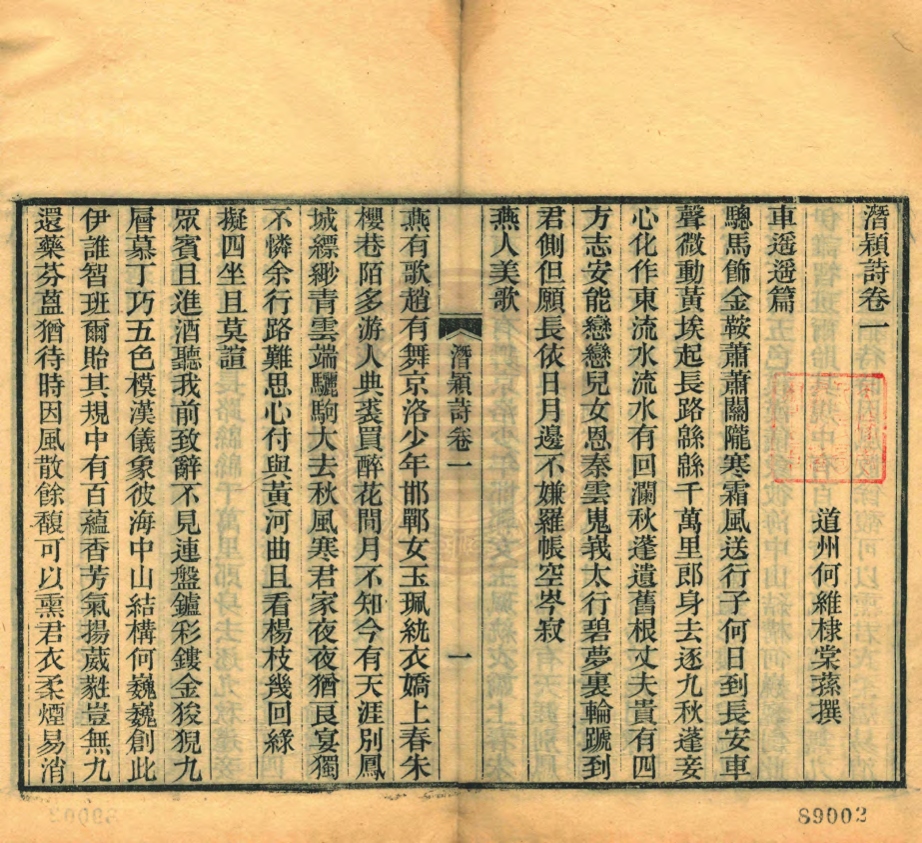 潛穎詩卷一
道州何維棣棠蓀撰
車遥遥篇
驄馬飾金鞍蕭蕭關隴寒霜風送行子何日到長安車
聲微動黃埃起長路緜緜千萬里郎身去逐九秋蓬妾
心化作東流水流水有回瀾秋蓬遺舊根丈夫貴有四
方志安能戀戀兒女恩秦雲嵬峩太行碧夢裏輪蹏到
君側但願長依日月邊不嫌羅帳空岑寂
燕人美歌
潛穎詩卷一
一
燕有歌趙有舞京洛少年邯鄲女玉珮紈衣嬌上春朱
櫻巷陌多游人典裘買醉花問月不知今有天涯別鳳
城縹緲青雲端驪駒大去秋風寒君家夜夜猶艮宴獨
不憐余行路難思心付與黃河曲且看楊枝幾回綠
擬四坐且莫諠
眾賓且進酒聽我前致辭不見連盤鑪彩鏤金狻猊九
層慕丁巧五色模漢儀象彼海中山結構何巍巍創此
伊誰智班爾貽其規中有百蘊香芳氣揚葳蕤豈無九
還藥芬葢猶待時因風散餘馥可以熏君衣柔煙易消
89002